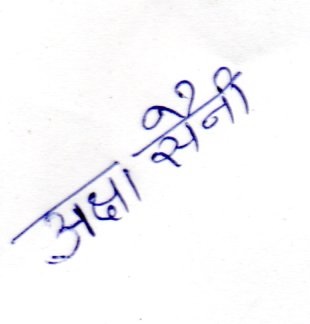 अक्षा सैनी